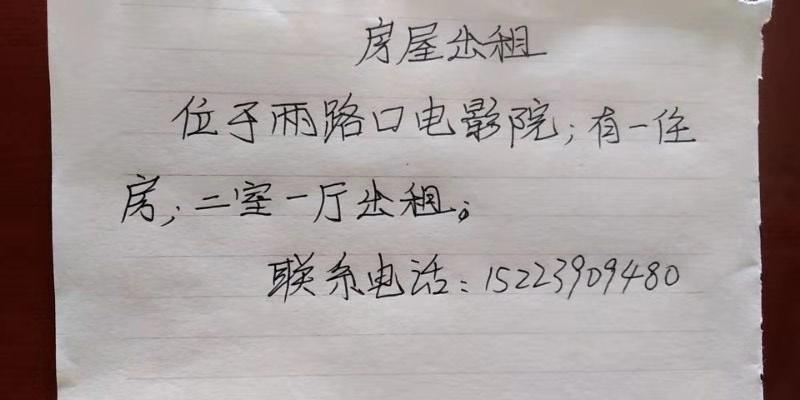 房屋出租
位于两路口电影院；有一住
房；二室一厅出租。
联系电话：15223909480